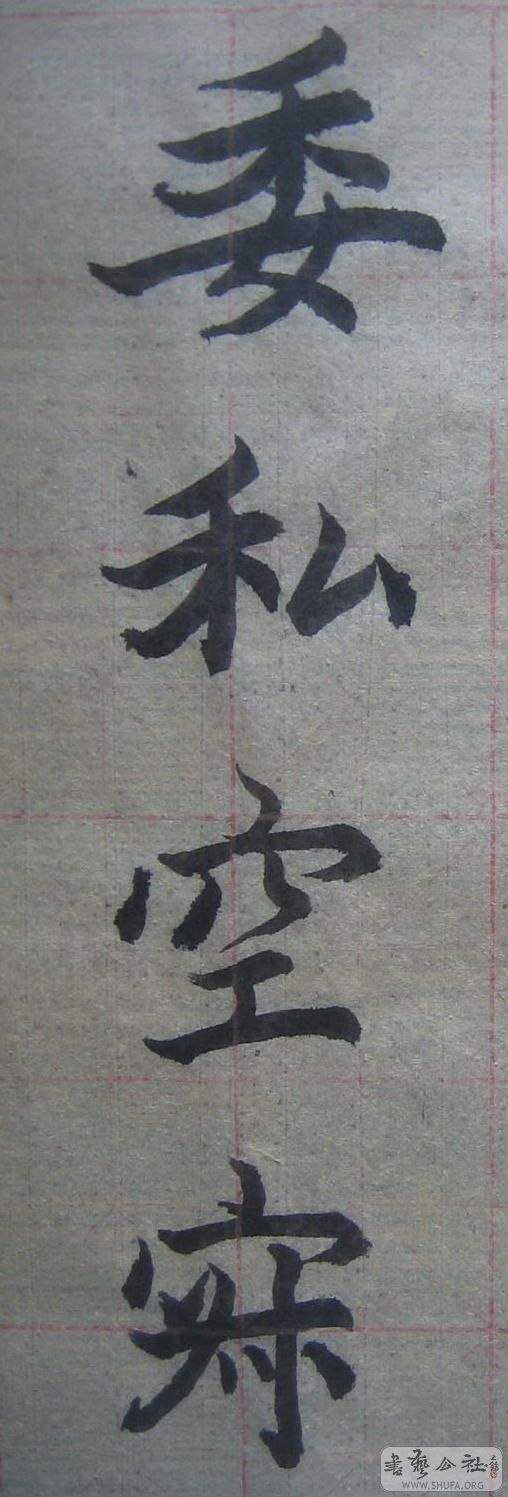 委私空寂
書藝公社
WWW.SHUFA.ORG